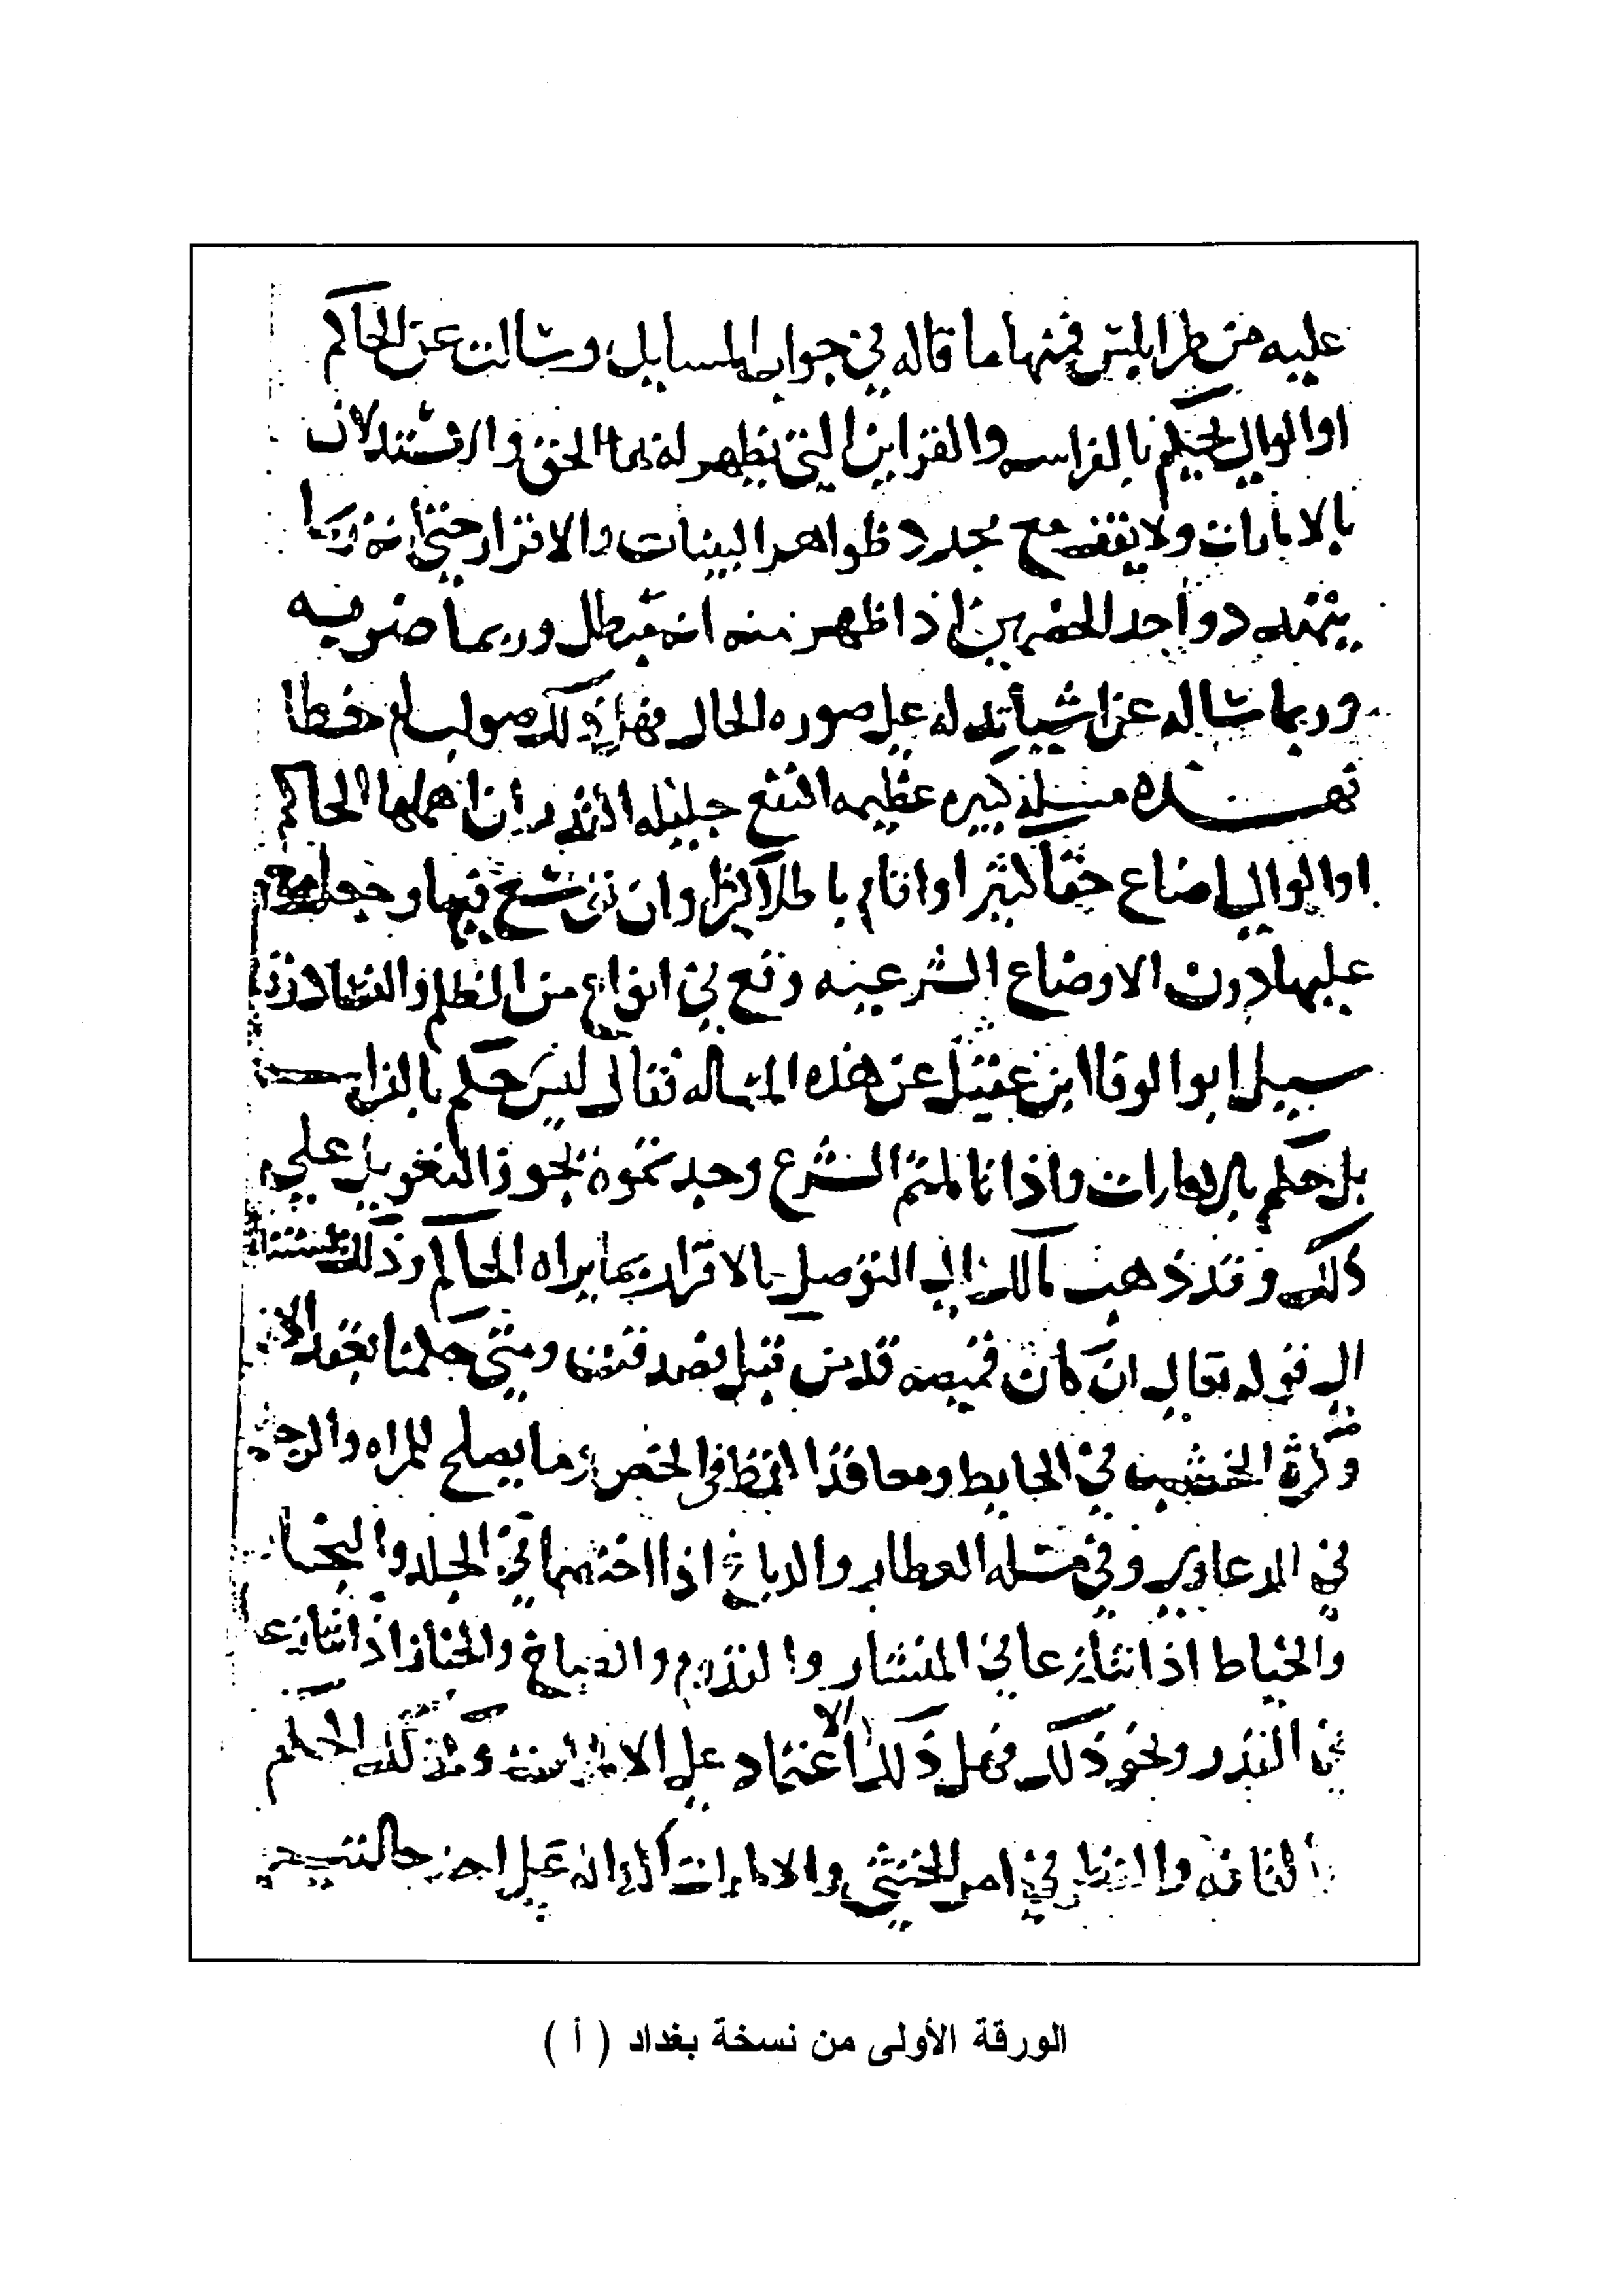 عليه من طرابلس فمنها ما قاله في جواب المسايل وسالت عن الحاكم
او الوالي يحكم بالفراسه والقراين التي يظهر له بها الحق والاستدلال
بالامارات ولا يقف مع مجرد ظواهر البينات والاقرار حتى انه ربما
يتهدد احد الخصمين اذا ظهر منه انه مبطل وربما ضربه
وربما ساله عن اشيا تدله على صوره الحال فهل ذلك صواب ام خطا
فهذه مسلة كبيره عظيمه النفع جليله القدر ان اهملها الحاكم
او الوالي اضاع حقا كثيرا واقام باطلا كثيرا وان توسع فيها وجعل معوله
عليها دون الاوضاع الشرعيه وقع في انواع من الظلم والفساد وقد
سيل ابو الوفا ابن عقيل عن هذه المساله فقال ليس حكم بالفراسه
بل حكم بالامارات واذا تاملتم الشرع وجدتموه يجوز التعويل على
ذلك وقد ذهب مالك الى التوصل بالاقرار بما يراه الحاكم وذلك مستند
الى قوله تعالى ان كان قميصه قد من قبل فصدقت ومتى حكمنا بعقد الازج
وكثرة الخشب في الحايط ومعاقد القمط في الخص وما يصلح للمراه والرجل
في الدعاوى وفي مسله العطار والدباغ اذا اختصما في الجلد والنجار
والخياط اذا تنازعا في المنشار والقدوم والطباخ والخباز اذا تنازعا
في القدر ونحو ذلك فهل ذلك الا اعتماد على الامارات وكذلك الحكم
بالقافه والنظر في امر الخنثى والامارات الداله على احد حالتيه
الورقة الأولى من نسخة بغداد ( أ )